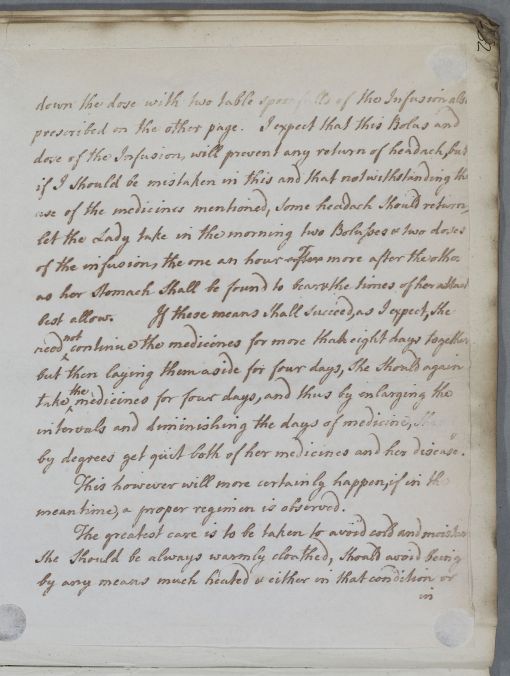 down the dose with two table spoonfulls of the Infusion also
prescribed on the other page. I expect that this Bolus and
dose of the Infusion, will prevent any return of headach, but
if I should be mistaken in this and that notwithstanding the
use of the medicines mentioned, some headach should return,
let the Lady take in the morning two Boluses & two doses
of the infusion, the one an hour or more after the other
as her Stomach shall be found to bear & the times of her
best allow. If these means shall succeed, as I expect, she
need not continue the medicines for more than eight days together
but then laying them aside for four days, she should again
take the medicines for four days, and thus by enlarging the
intervals and diminishing the days of medicine,
by degrees get quit both of her medicines and her disease.
This however will more certainly happen, if in the
meantime, a proper regimen is observed.
The greatest care is to be taken to avoid cold and moisture
She should be always warmly cloathed, should avoid being
by any means much heated & either in that condition or
in